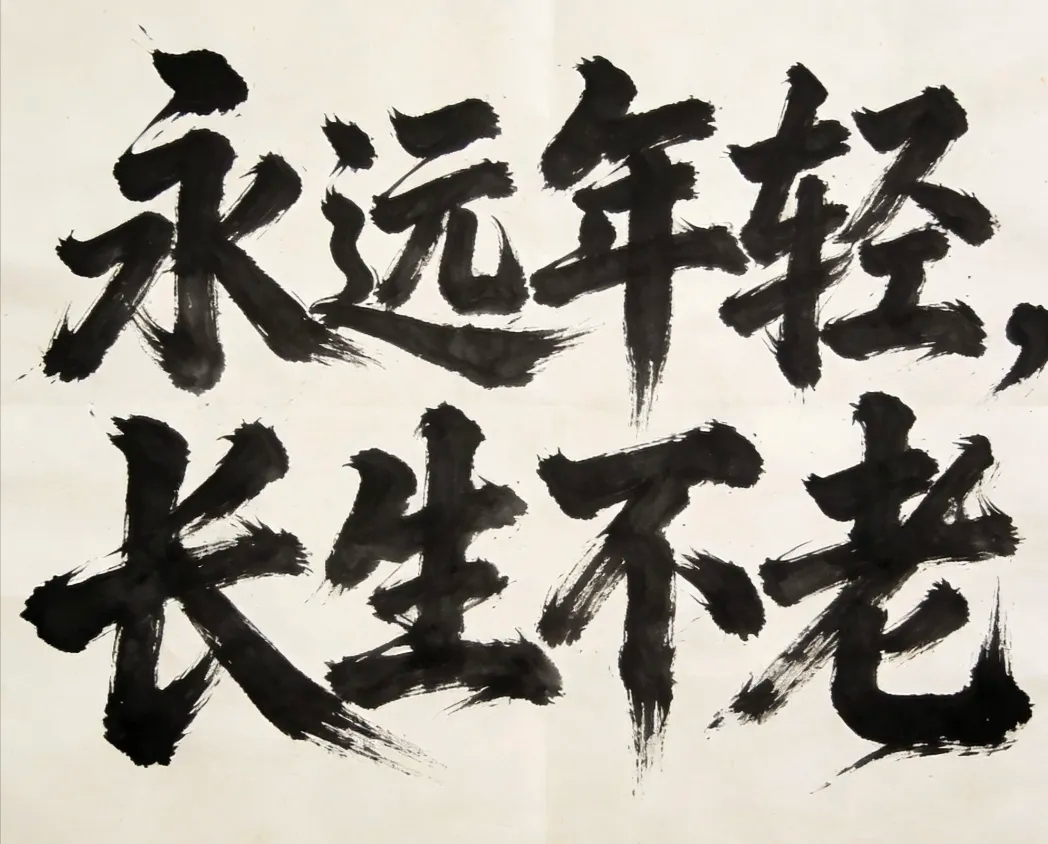 永远年轻,
长生不老